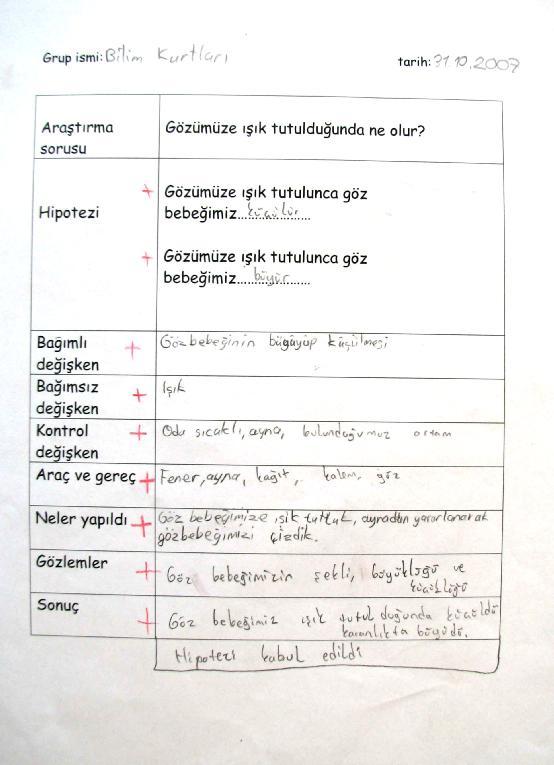 Grup ismi: Bilim Kurtları
tarih: 31.10.2007
Araştırma sorusu
Gözümüze ışık tutulduğunda ne olur?
Hipotezi
+ Gözümüze ışık tutulunca göz
bebeğimiz...küçülür...
+ Gözümüze ışık tutulunca göz
bebeğimiz...büyür...
Bağımlı değişken +
Göz bebeğinin büyüyüp küçülmesi
Bağımsız değişken +
Işık
Kontrol değişken +
Oda sıcaklı, ayna, bulunduğumuz ortam
Araç ve gereç +
Fener, ayna, kağıt, kalem, göz
Neler yapıldı +
Göz bebeğimize ışık tuttuk, aynadan yararlanarak
gözbebeğimizi çizdik.
Gözlemler +
Göz bebeğimizin şekli, büyüklüğü ve
küçüklüğü
Sonuç +
Göz bebeğimiz ışık tutulduğunda küçüldü
karanlıkta büyüdü.
Hipotezi kabul edildi